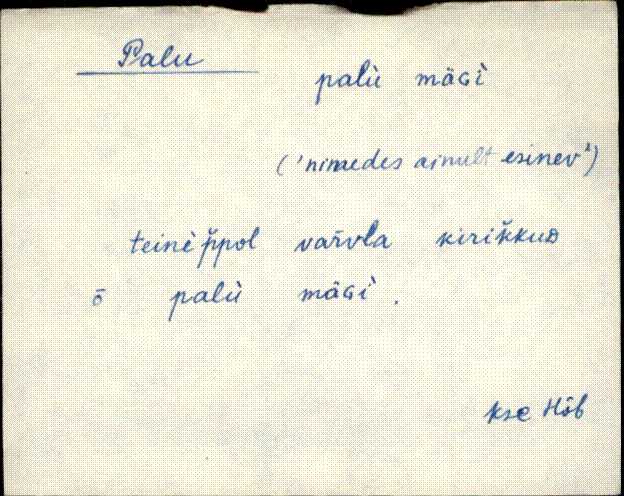 Palu
palù mäɢì
('nimedes ainult esinev')
teinèp̆pol var̆vla kirik̆kuᴅ
ō palù mäɢì.
Kse Hõb